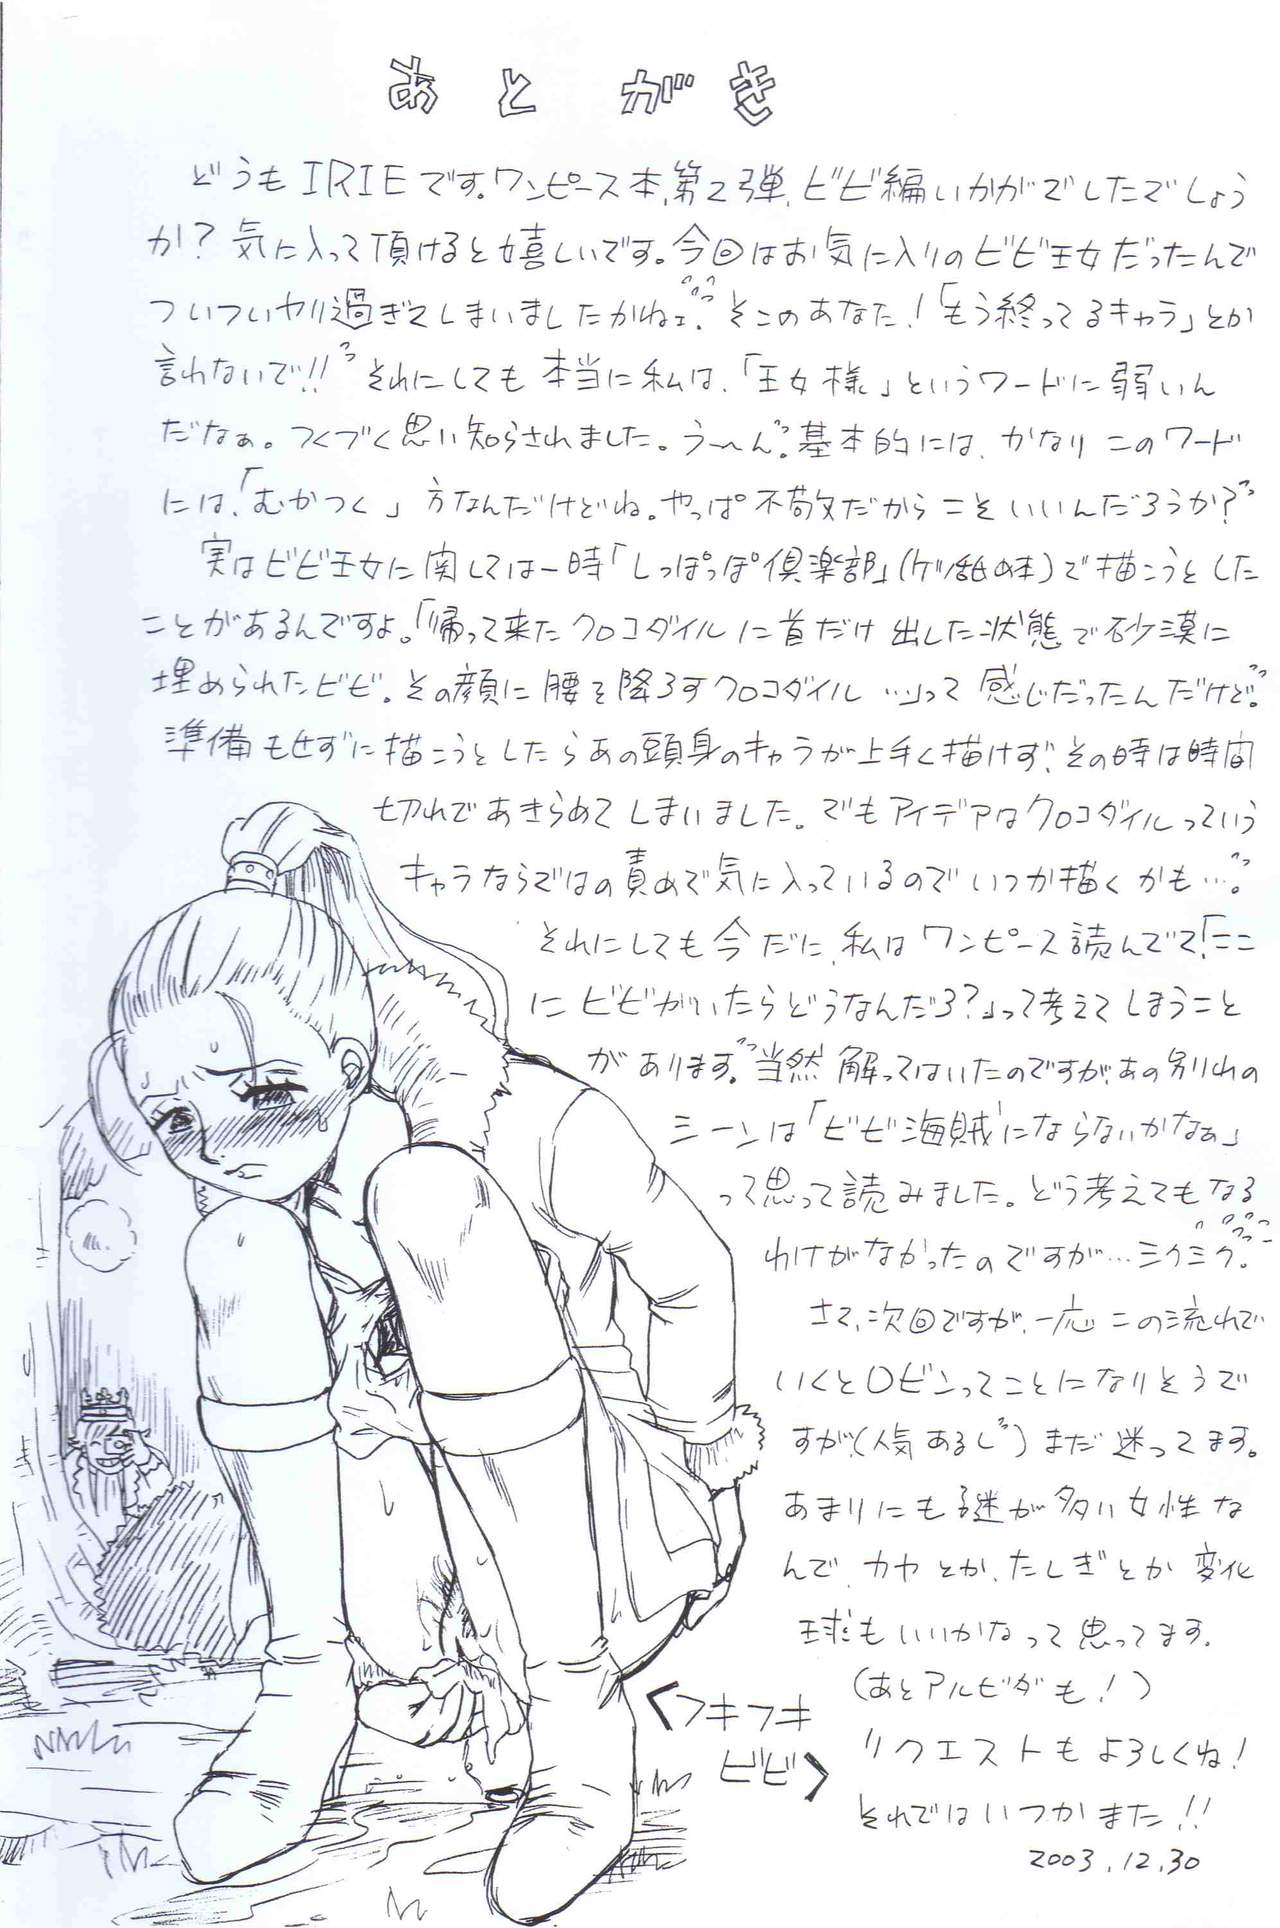 あとがき
どうもIRIEです。ワンピース本、第2弾、ビビ編いかがでしたでしょう
か?気に入って頂けると嬉しいです。今回はお気に入りのビビ王女だったんで
ついついヤリ過ぎてしまいましたかねェ。そこのあなた!「もう終ってるキャラ」とか
言わないで!!それにしても本当に私は、「王女様」というワードに弱いん
だなぁ。つくづく思い知らされました。う~ん。基本的には、かなりこのワード
には、「むかつく」方なんだけどね。やっぱ不敬だからこそいいんだろうか?
実はビビ王女に関しては一時「しっぽっぽ倶楽部」で描こうとした
ことがあるんですよ。「帰って来たクロコダイルに首だけ出した状態で砂漠に
埋められたビビ。その顔に腰を降ろすクロコダイル…」って感じだったんだけど。
準備もせずに描こうとしたらあの頭身のキャラが上手く描けず、その時は時間
切れであきらめてしまいました。でもアイデアはクロコダイルっていう
キャラならではの責めで気に入っているのでいつか描くかも…。
それにしても今だに、私はワンピース読んでて、「ここ
にビビがいたらどうなんだろ?」って考えてしまうこと
があります。当然解ってはいたのですが、あの別れの
シーンは「ビビ海賊にならないかなぁ」
って思って読みました。どう考えてもなる
わけがなかったのですが…ミクミク。
さて、次回ですが、一応この流れで
いくとロビンってことになりそうで
すが、(人気あるし)まだ迷ってます。
あまりにも謎が多い女性な
んで、カヤとか、たしぎとか変化
球もいいかなって思ってます。
(あとアルビダも!)
リクエストもよろしくね!
それではいつかまた!!
2003.12.30
<フキフキ
ビビ>